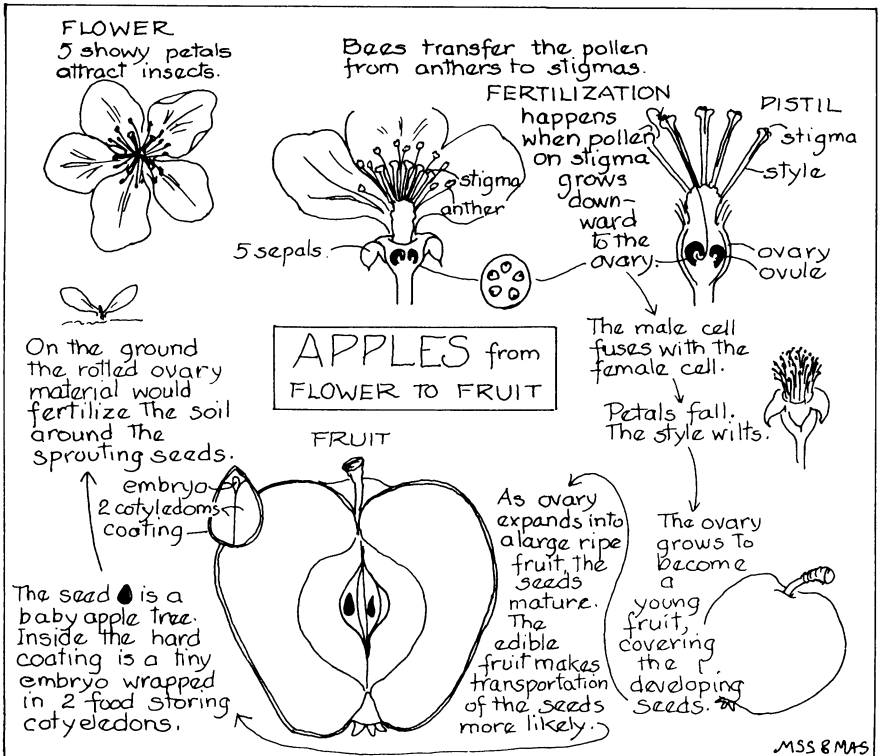 FLOWER
5 showy petals
attract insects.
Bees transfer the pollen
from anthers to stigmas.
FERTILIZATION
happens
when pollen
on stigma
grows
down-
ward
to the
ovary.
PISTIL
stigma
style
ovary
ovule
stigma
anther
5 sepals
The male cell
fuses with the
female cell.
Petals fall.
The style wilts.
The ovary
grows to
become
a
young
fruit,
covering
the
developing
seeds.
APPLES from
FLOWER TO FRUIT
FRUIT
As ovary
expands into
a large ripe
fruit, the
seeds
mature.
The
edible
fruit makes
transportation
of the seeds
more likely.
embryo
2 cotyledoms
coating
The seed is a
baby apple tree.
Inside the hard
coating is a tiny
embryo wrapped
in 2 food storing
cotyeledons.
On the ground
the rotted ovary
material would
fertilize the soil
around the
sprouting seeds.
MSS & MAS